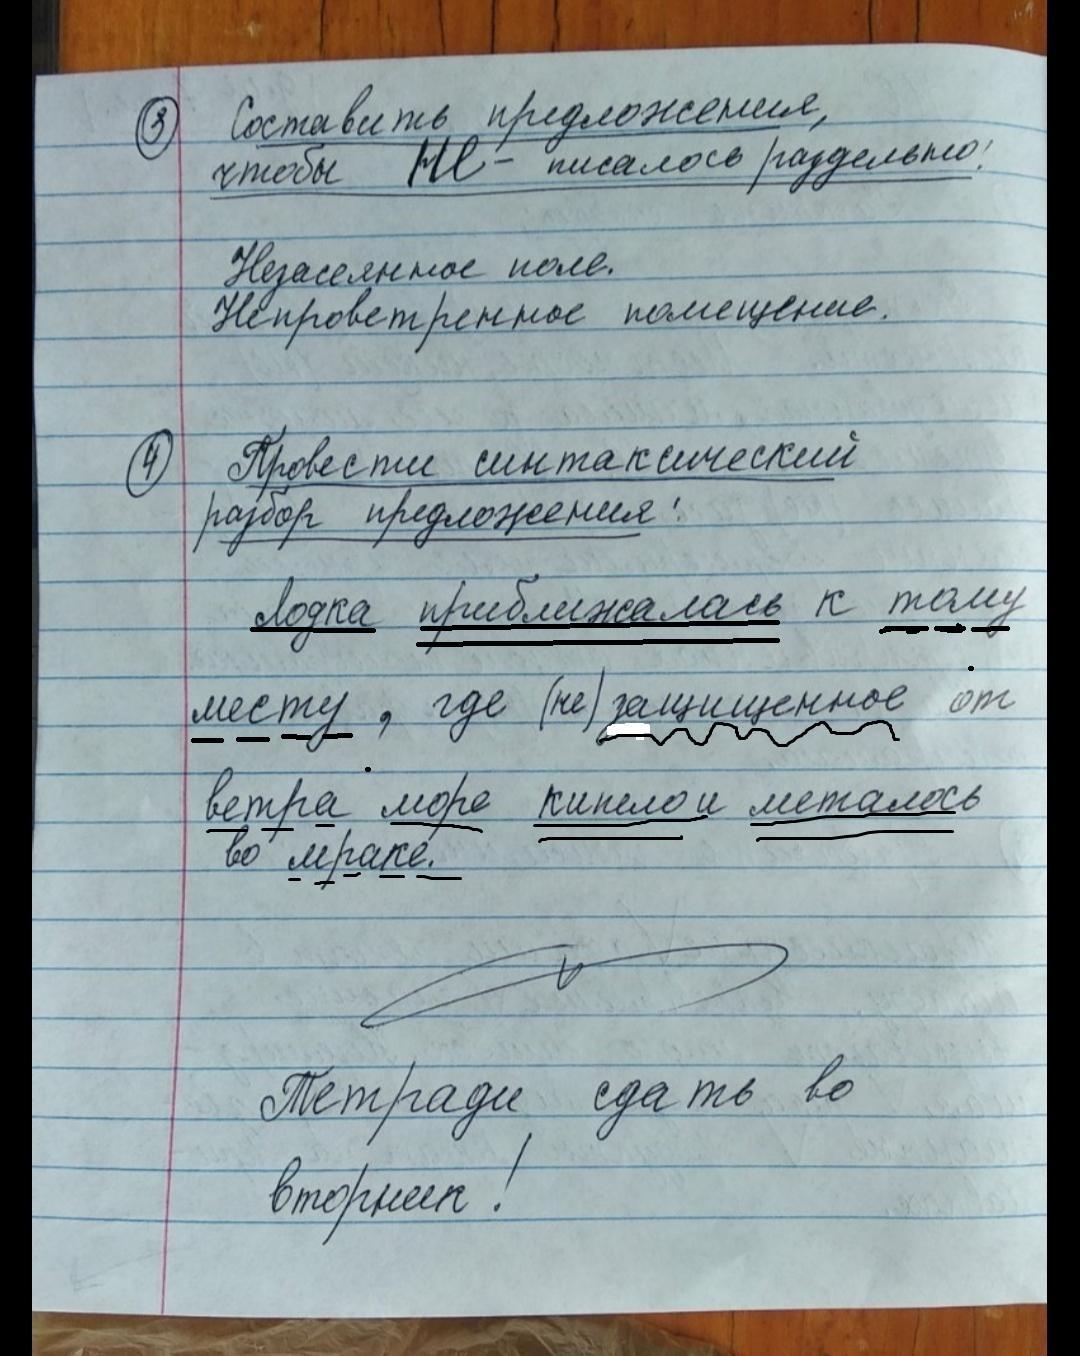 3 Составить предложения,
чтобы НЕ - писалось раздельно:
Незасеянное поле.
Непроветренное помещение.
4 Провести синтаксический
разбор предложения:
Лодка приближалась к тому
месту, где (не)защищенное от
ветра море кипело и металось
во мраке.
Тетради сдать во
вторник!